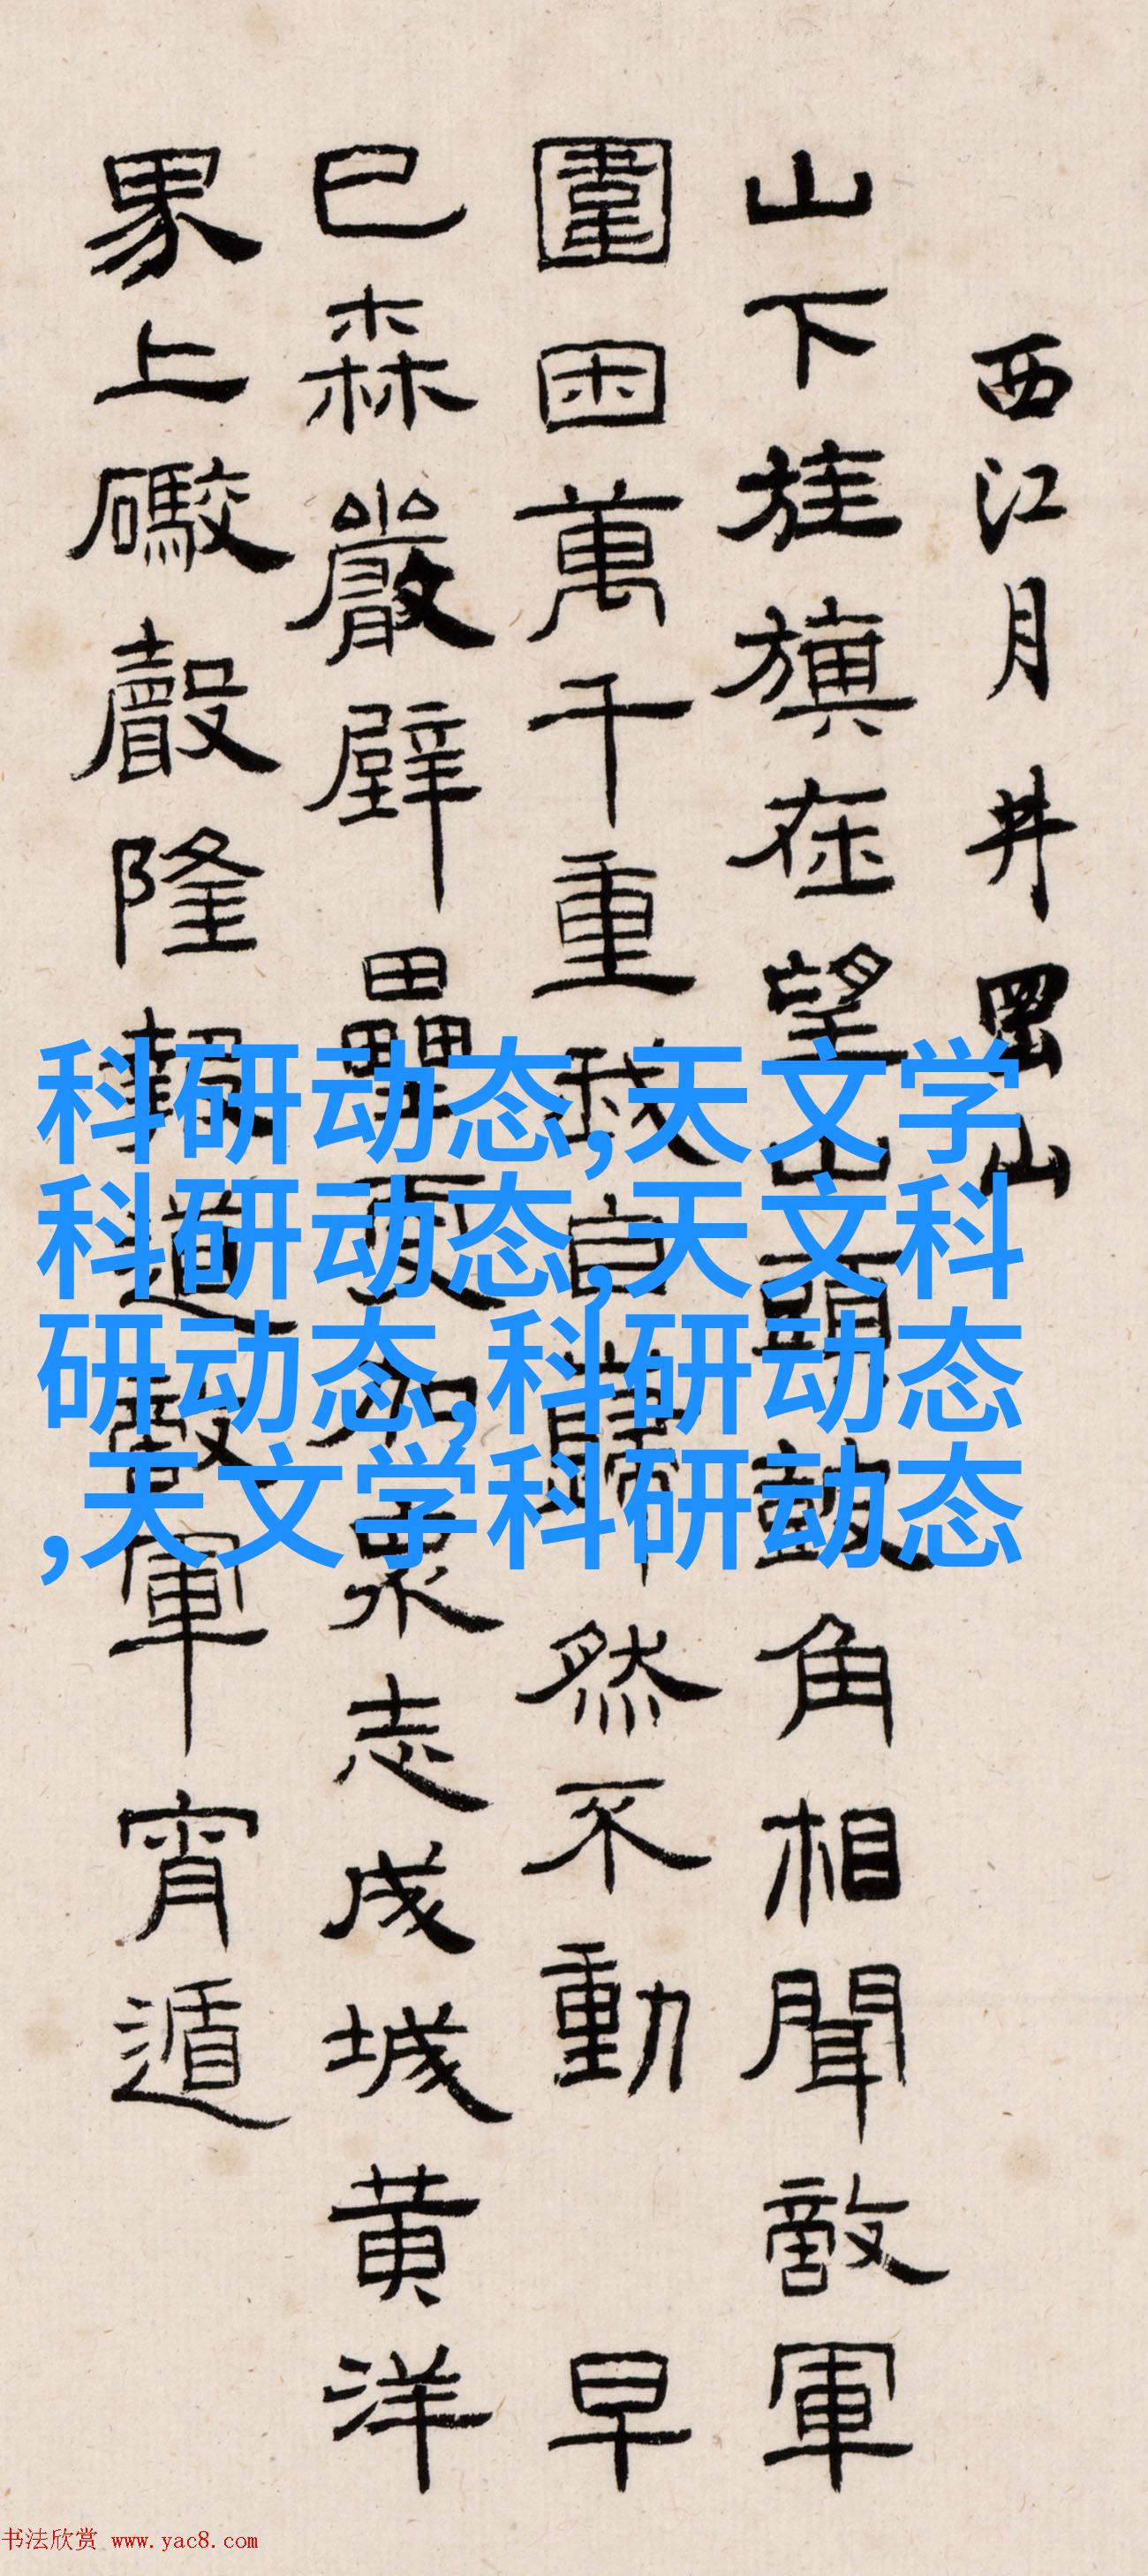 西江月井岡山
山下旌旗在望山頭鼓角相聞敵軍
圍困萬千重我自巋然不動 早
已森嚴壁壘更加衆志成城黃洋
界上礮聲隆報道敵軍宵遁
科研动态,天文学
科研动态,天文科
研动态,科研动态
,天文学科研动态
书法欣赏 www.yac8.com